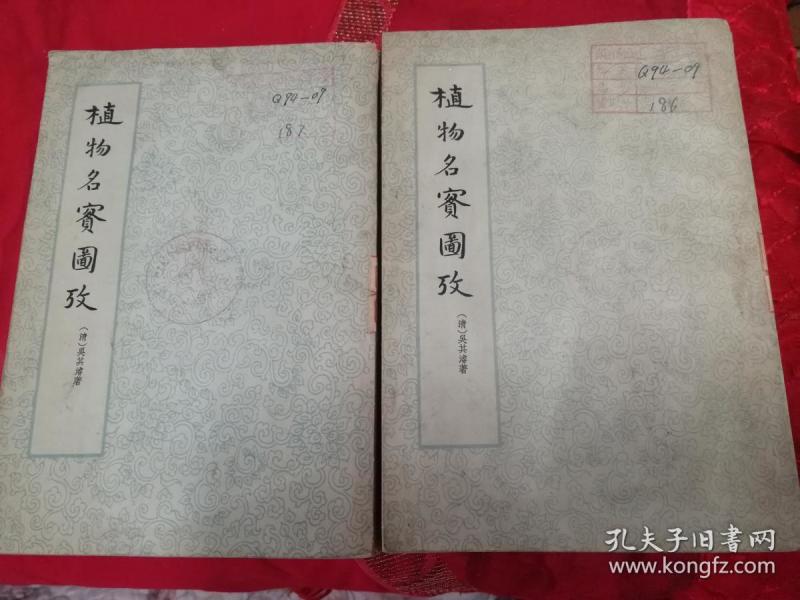 植物名實圖攷
(清)吳其濬著
Q94-09
187
植物名實圖攷
(清)吳其濬著
Q94-09
186
孔夫子旧書网
www.kongfz.com